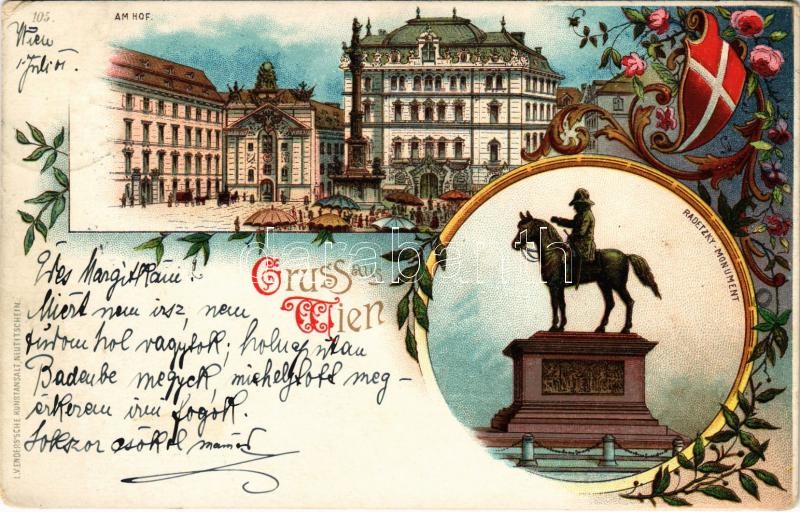 105.
AM HOF.
Wien
1 Juli 01.
RADETZKY-MONUMENT
darabanth
Gruss aus
Wien
Édes Margitkám!
Miért nem irsz, nem
tudom hol vagytok; holnapután
Badenbe megyek, mihelytott meg-
érkezem irni fogok.
Sokszor csókol
L.V.ENDERS'SCHE KUNSTANSTALT, NEUTITSCHEIN.